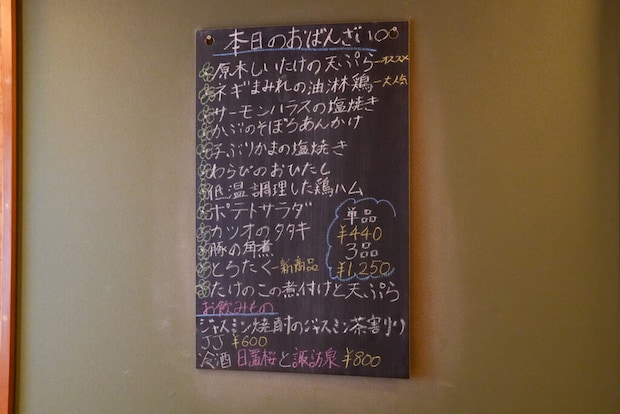 本日のおばんざい
原木しいたけの天ぷら-オススメ
ネギまみれの油淋鶏-大人気
サーモンハラスの塩焼き
かぶのそぼろあんかけ
天ぶりかまの塩焼き
わらびのおひたし
低温調理した鶏ハム
ポテトサラダ
カツオのタタキ
豚の角煮
とろたく-新商品
たけのこの煮付けと天ぷら
単品
¥440
3品
¥1,250
お飲みもの
ジャスミン焼酎のジャスミン茶割り
JJ ¥600
冷酒 日置桜と諏訪泉 ¥800